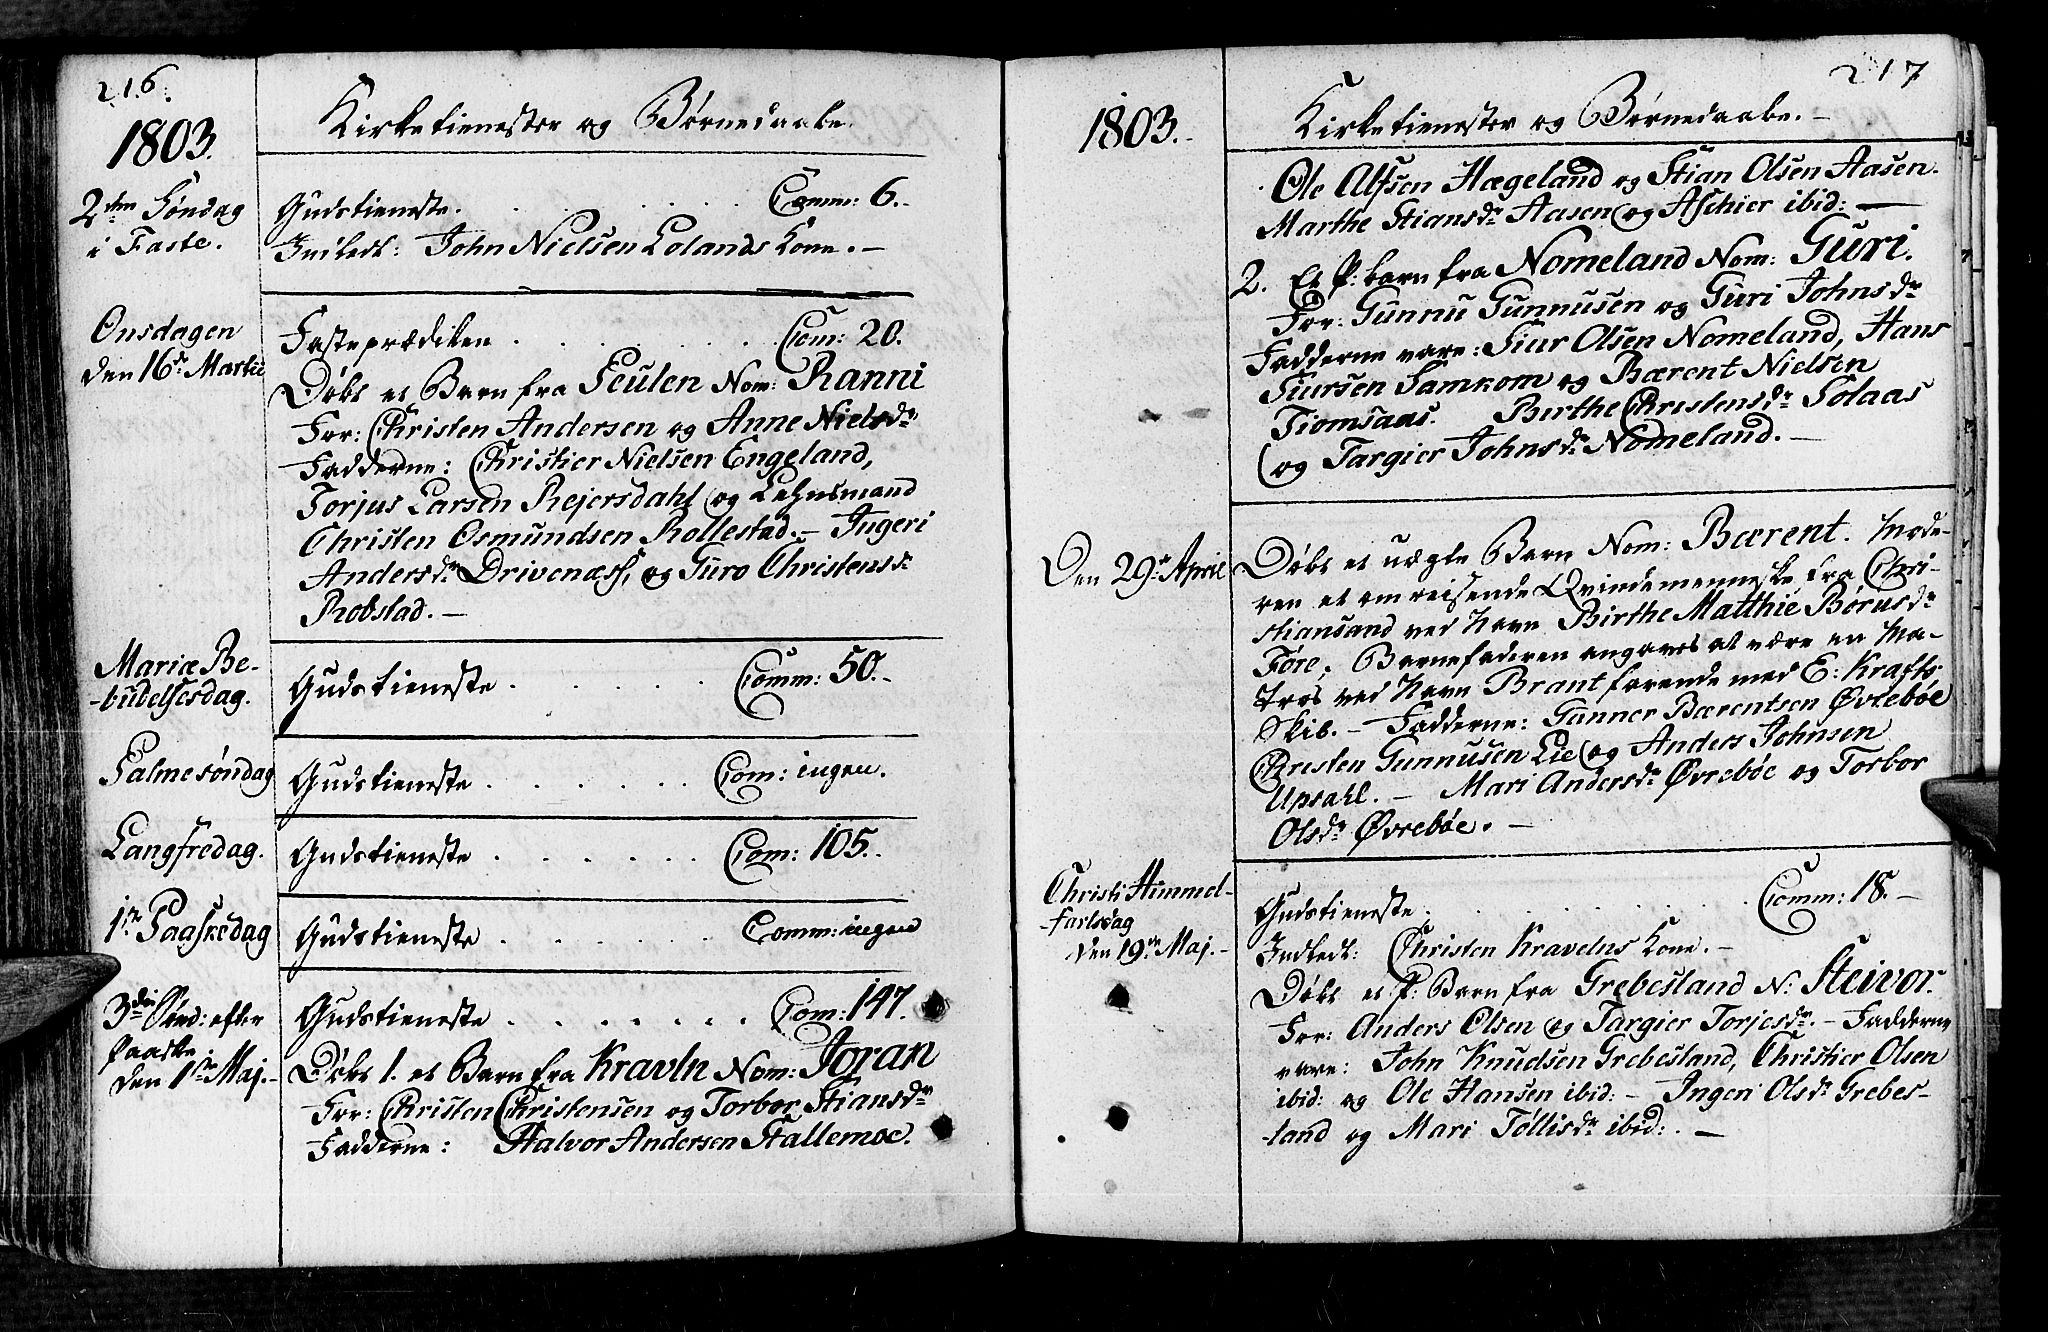 216.
1803.
Kirketienester og Børnedaabe.
2den Søndag
i Faste.
Gudstieneste. Comm: 6.
Indledt: John Nielsen Lolands Kone. –
Onsdagen
den 16de Martii
Fasteprædiken Com: 20.
Døbt et Barn fra Feulen Nom: Ranni
For: Christen Andersen og Anne Nielsdr
Fadderne: Christier Nielsen Engeland,
Torjus Larsen Rejersdahl og Lehnsmand
Christen Osmundsen Rollestad. – Ingeri
Andersdr Drivenæss, og Guro Christensdr
Robstad. –
Mariæ Be-
-budelsesdag.
Gudstieneste Comm: 50. –
Palmesøndag
Gudstieneste Com: ingen.
Langfredag.
Gudstieneste Com: 105.
1ste Paaskedag
Gudstieneste Comm: ingen
3die Sønd: efter
Paaske.
den 1ste Maj. –
Gudstieneste Com: 147.
Døbt 1. et Barn fra Kravln Nom: Joran
For: Christen Christensen og Torbor Stiansdr
Fadderne: Halvor Andersen Stallemoe.
217
1803.
Kirketienester og Børnedaabe. –
Ole Alfsen Hægeland og Stian Olsen Aasen.
Marthe Stiansdr Aasen og Aschier ibid: –
2. Et P: barn fra Nomeland Nom: Guri.
For: Gunnu Gunnusen og Guri Johnsdr
Fadderne vare: Siur Olsen Nomeland, Hans
Siursen Samkom og Bærent Nielsen
Tiomsaas. Birthe Christensdr Solaas
og Targier Johnsdr Nomeland. –
Den 29de April
Døbt et uægte Barn Nom: Bærent. Mode-
ren et omreisende Qvindemenneske fra Chri-
stiansand ved Navn Birthe Matthie Børusdr
Føre; Barnefaderen angaves at være en Ma-
tros ved Navn Brant farende med E: Krafts
Skib. – Fadderne: Gunner Bærentsen Øvrebøe
Christen Gunnusen Lie og Anders Johnsen
Upsahl. – Mari Andersdr Øvrebøe og Torbor
Olsdr Øvrebøe. –
Christi Himmel-
-fartsdag
den 19de Maj. –
Gudstieneste Comm: 18. –
Indledt: Christen Kravelns Kone. –
Døbt et P: Barn fra Grebesland N: Steivor.
For: Anders Olsen og Targier Torjesdr. – Fadderne
vare: John Knudsen Grebesland, Christier Olsen
ibid: og Ole Hansen ibid: – Ingeri Olsdr Grebes-
-land og Mari Tøllisdr ibid: . –